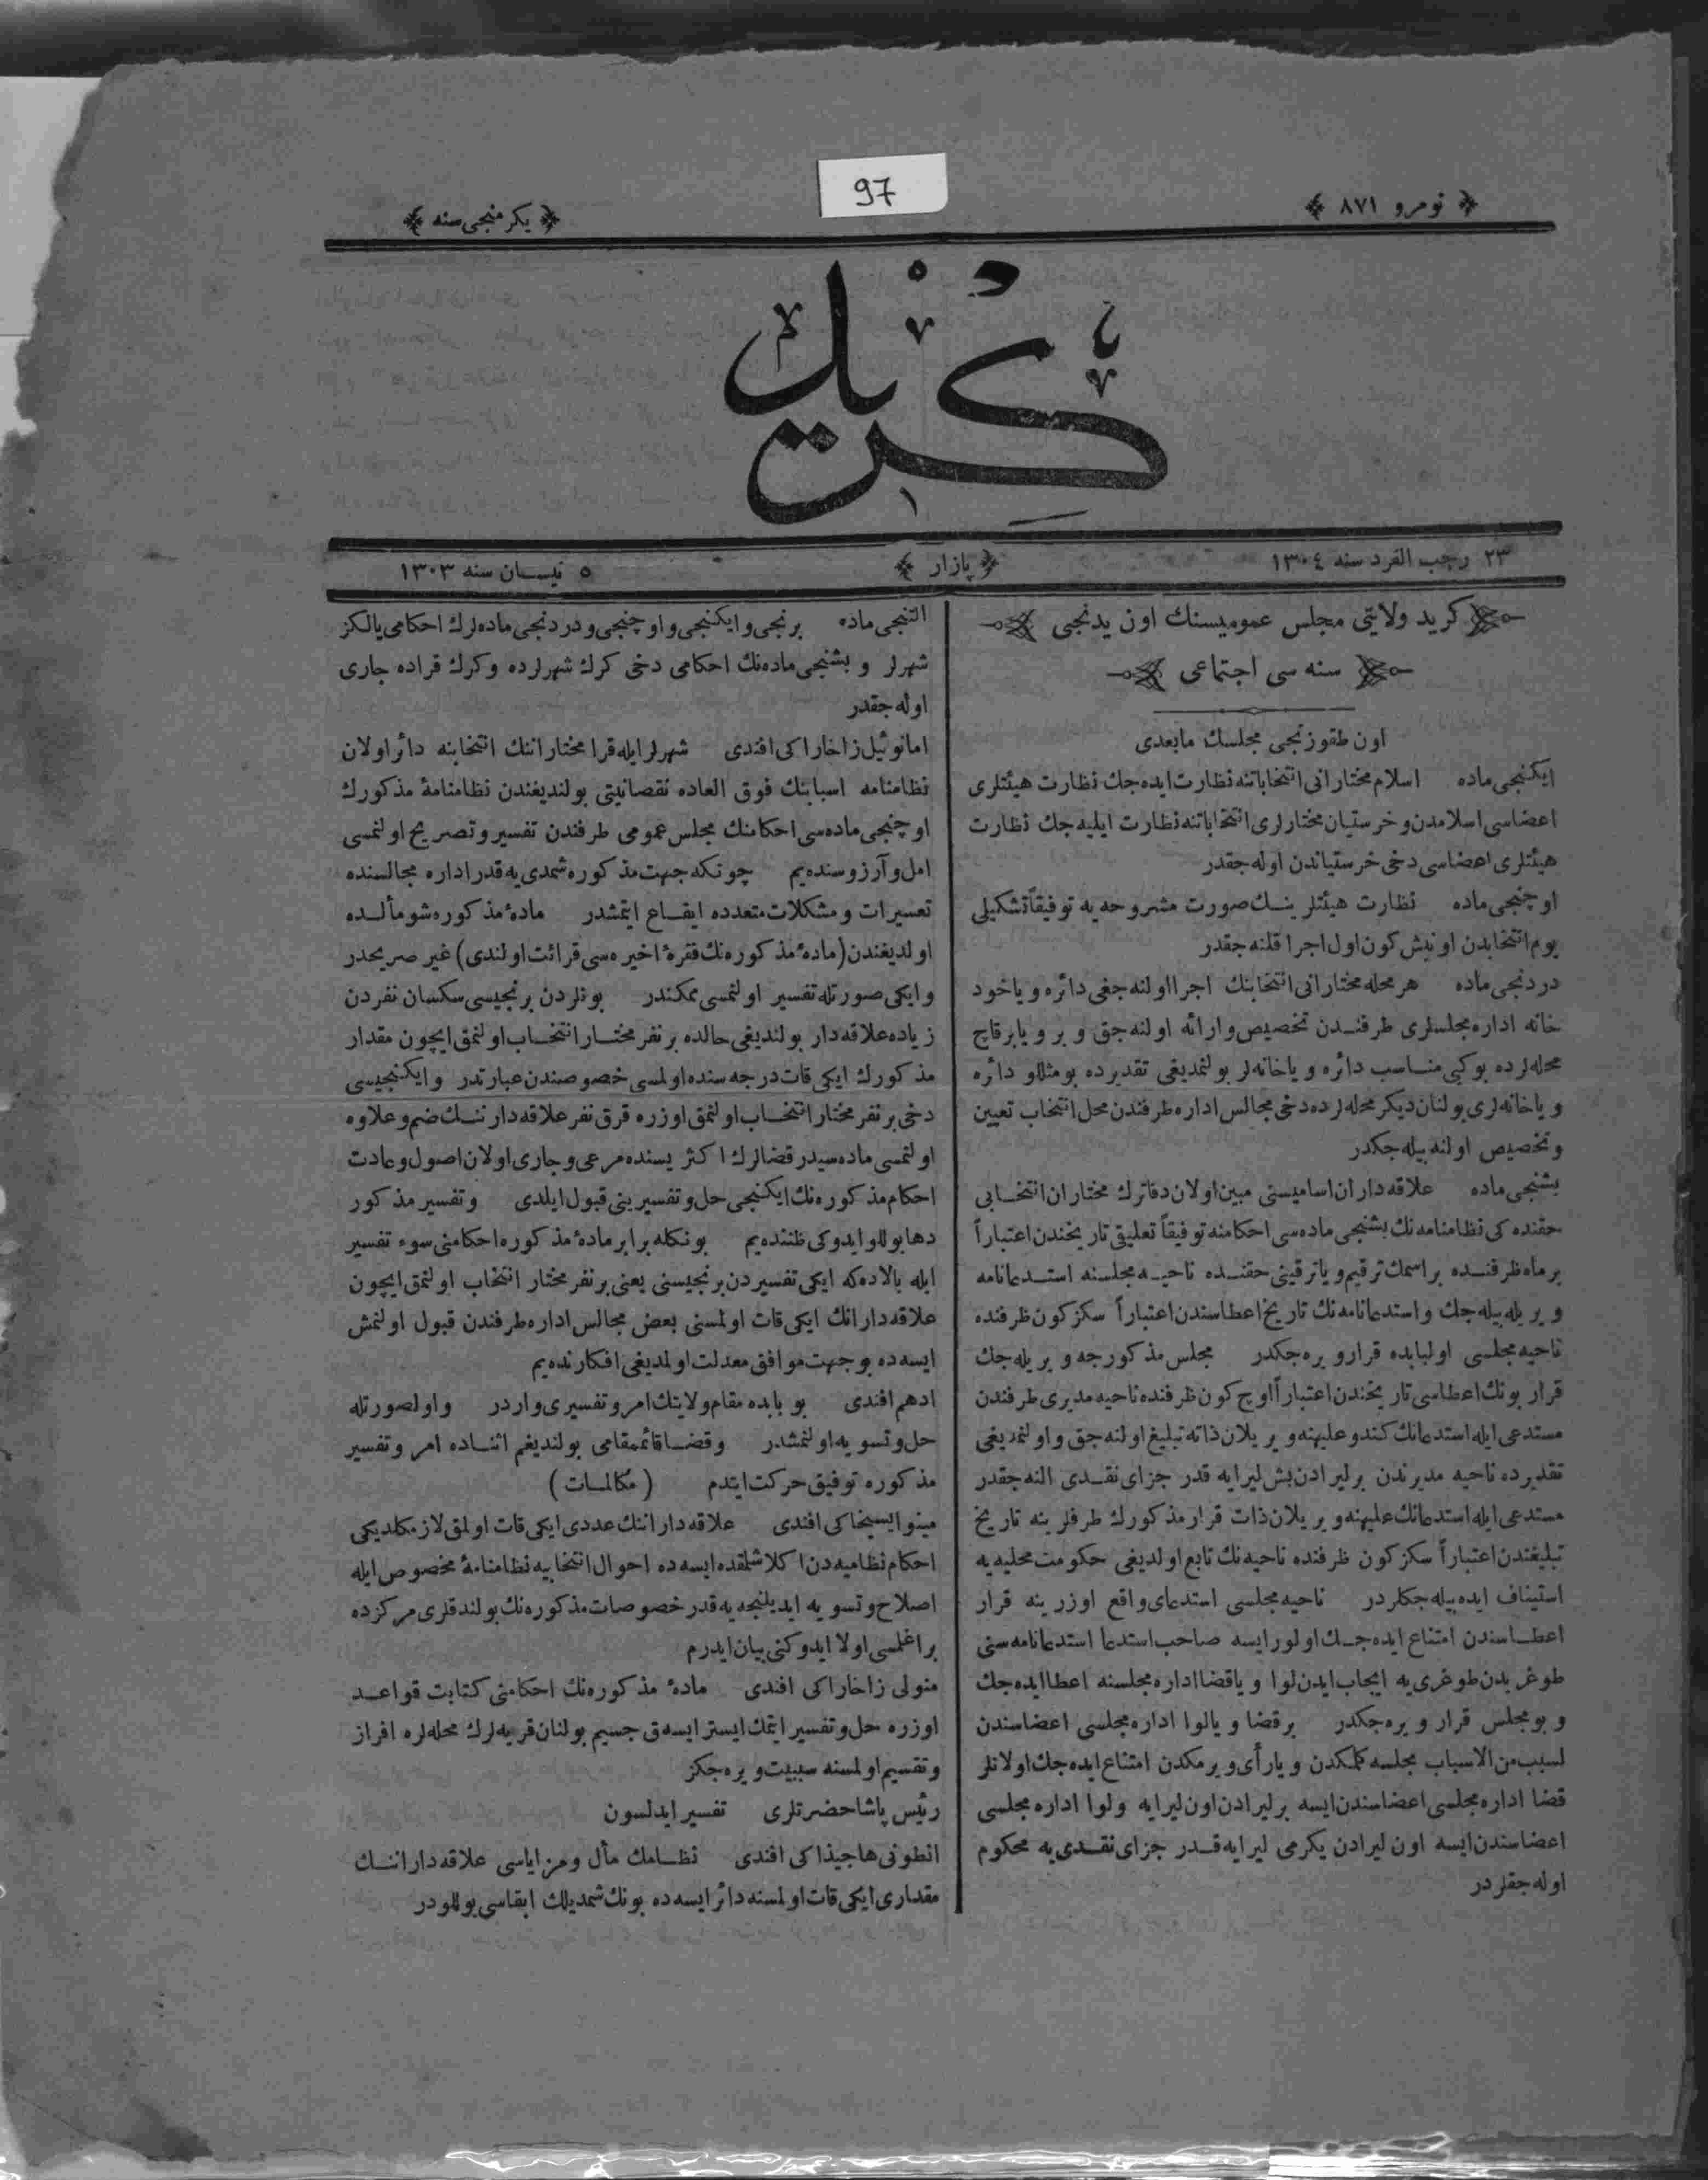 97
نومرو ٨٧١
يكرمنجى سنه
كريد
٢٣ رجب الفرد سنه ١٣٠٤
پازار
٥ نيسان سنه ١٣٠٣
كريد ولايتى مجلس عموميسنك اون يدنجى
سنه سى اجتماعى
اون طقوزنجى مجلسك مابعدى
ايكنجى ماده اسلام مختارانى انتخاباتنه نظارت ايده جك نظارت هيئتلرى
اعضاسى اسلامدن و خرستيان مختارلرى انتخاباتنه نظارت ايليه جك نظارت
هيئتلرى اعضاسى دخى خرستياندن اوله جقدر
اوچنجى ماده نظارت هيئتلرينك صورت مشروحه يه توفيقاً تشكيلى
يوم انتخابدن اون بش كون اول اجرا قلنه جقدر
دردنجى ماده هر محله مختارانى انتخابنك اجرا اولنه جغى دائره و ياخود
خانه اداره مجلسلرى طرفندن تخصيص و ارائه اولنه جق و بر و يا برقاچ
محله لرده بوكبى مناسب دائره و ياخانه لر بولنمديغى تقديرده بومثللو دائره
و ياخانه لرى بولنان ديكر محله لرده دخى مجالس اداره طرفندن محل انتخاب تعيين
و تخصيص اولنه بيله جكدر
بشنجى ماده علاقه داران اساميسنى مبين اولان دفاترك مختاران انتخابى
حقنده كى نظامنامه نك بشنجى ماده سى احكامنه توفيقاً تعليق تاريخندن اعتباراً
بر ماه ظرفنده بر اسمك ترقيم و ياترقينى حقنده ناحيه مجلسنه استدعانامه
و يريله بيله جك و استدعانامه نك تاريخ اعطاسندن اعتباراً سكز كون ظرفنده
ناحيه مجلسى اولبابده قرار ويره جكدر مجلس مذكورجه ويريله جك
قرار بونك اعطاسى تاريخندن اعتباراً اوچ كون ظرفنده ناحيه مديرى طرفندن
مستدعى ايله استدعانك كندو عليهنه ويريلان ذاته تبليغ اولنه جق و اولنمديغى
تقديرده ناحيه مديرندن بر ليرادن بش ليرايه قدر جزاى نقدى النه جقدر
مستدعى ايله استدعانك عليهنه ويريلان ذات قرار مذكورك طرفلرينه تاريخ
تبليغندن اعتباراً سكز كون ظرفنده ناحيه نك تابع اولديغى حكومت محليه يه
استيناف ايده بيله جكلردر ناحيه مجلسى استدعاى واقع اوزرينه قرار
اعطاسندن امتناع ايده جك اولور ايسه صاحب استدعا استدعانامه سنى
طوغريدن طوغرى يه ايجاب ايدن لوا و ياقضا اداره مجلسنه اعطا ايده جك
و بو مجلس قرار ويره جكدر بر قضا و يالوا اداره مجلسى اعضاسندن
لسبب من الاسباب مجلسه كلمكدن و يارأى ويرمكدن امتناع ايده جك اولانلر
قضا اداره مجلسى اعضاسندن ايسه بر ليرادن اون ليرايه و لوا اداره مجلسى
اعضاسندن ايسه اون ليرادن يكرمى ليرايه قدر جزاى نقدى يه محكوم
اوله جقلردر
التنجى ماده برنجى و ايكنجى و اوچنجى و دردنجى ماده لرك احكامى يالكز
شهرلر و بشنجى ماده نك احكامى دخى كرك شهرلرده و كرك قراده جارى
اوله جقدر
امانوئيل زاخاراكى افندى شهرلر ايله قرا مختاراننك انتخابنه دائر اولان
نظامنامه اسبابنك فوق العاده نقصانيتى بولنديغندن نظامنامهٔ مذكورك
اوچنجى ماده سى احكامنك مجلس عمومى طرفندن تفسير و تصريح اولنمسى
امل و آرزوسنده يم چونكه جهت مذكوره شمدى يه قدر اداره مجالسنده
تعسيرات و مشكلات متعدده ايقاع ايتمشدر مادهٔ مذكوره شو مألده
اولديغندن (مادهٔ مذكوره نك فقرهٔ اخيره سى قرائت اولندى) غير صريحدر
و ايكى صورتله تفسير اولنمسى ممكندر بونلردن برنجيسى سكسان نفردن
زياده علاقه دار بولنديغى حالده بر نفر مختار انتخاب اولنمق ايچون مقدار
مذكورك ايكى قات درجه سنده اولمسى خصوصندن عبارتدر و ايكنجيسى
دخى بر نفر مختار انتخاب اولنمق اوزره قرق نفر علاقه دارننك ضم و علاوه
اولنمسى ماده سيدر قضالرك اكثريسنده مرعى و جارى اولان اصول و عادت
احكام مذكوره نك ايكنجى حل و تفسيرينى قبول ايلدى و تفسير مذكور
دها يوللو ايدوكى ظننده يم بونكله برابر مادهٔ مذكوره احكامنى سوء تفسير
ايله بالاده كه ايكى تفسيردن برنجيسنى يعنى بر نفر مختار انتخاب اولنمق ايچون
علاقه دارانك ايكى قات اولمسنى بعض مجالس اداره طرفندن قبول اولنمش
ايسه ده بو جهت موافق معدلت اولمديغى افكارنده يم
ادهم افندى بو بابده مقام ولايتك امر و تفسيرى واردر و اولصورتله
حل و تسويه اولنمشدر و قضا قائممقامى بولنديغم اثناده امر و تفسير
مذكوره توفيق حركت ايتدم (مكالمات)
مينو ايسيخاكى افندى علاقه داراننك عددى ايكى قات اولمق لازمكلديكى
احكام نظاميه دن اكلاشلمقده ايسه ده احوال انتخابيه نظامنامهٔ مخصوص ايله
اصلاح و تسويه ايديلنجه يه قدر خصوصات مذكوره نك بولندقلرى مركزده
براغلمسى اولا ايدوكنى بيان ايدرم
منولى زاخاراكى افندى مادهٔ مذكوره نك احكامنى كتابت قواعد
اوزره حل و تفسير ايتمك ايستر ايسه ق جسيم بولنان قريه لرك محله لره افراز
و تقسيم اولمسنه سببيت ويره جكز
رئيس پاشا حضرتلرى تفسير ايدلسون
انطونى هاجيذاكى افندى نظامك مأل و مزاياسى علاقه داراننك
مقدارى ايكى قات اولمسنه دائر ايسه ده بونك شمديلك ابقاسى يوللودر